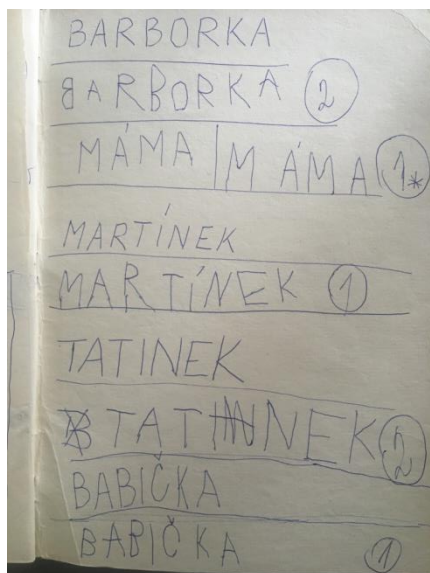 BARBORKA
BARBORKA 2
MÁMA | MÁMA 1*
MARTÍNEK
MARTÍNEK 1
TATINEK
TATINEK 2
BABIČKA
BABIČKA 1